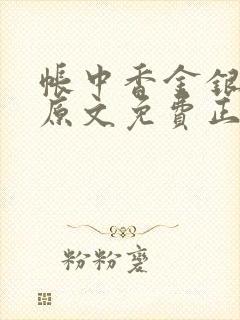 帳中香金銀
原文免費正
粉粉寶